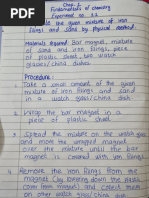 Chap. 1
Fundamentals of chemistry
Experiment no. 1.1
the given mixture of iron
filings and sand by physical method.
Materials Required Bar magnet, mixture
of sand and iron filings, piece
of plastic sheet, two watch
glasses/china dishes
Procedure:
1. Take a small amount of the given
mixture of iron filings and sand
in a watch glass/china dish
2. Wrap the bar magnet in a
piece of plastic sheet.
3. Spread the mixture on the watch glass
and move the wrapped bar magnet
over the mixture until the bar
magnet is covered with iron filings
4. Remove the iron filings from the
magnet (by removing down the plastic
cover from magnet) and collect them
on other watch glass/china